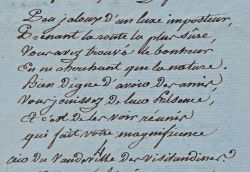 Peu jaloux d'un luxe imposteur,
Prenant la route la plus sûre,
Vous avez trouvé le bonheur
En ne cherchant que la nature.
Bien digne d'avoir des amis
Vous jouissez de leur présence,
Et c'est de les voir réunis
qui fait votre magnificence
air du Vaudeville des Visitandines